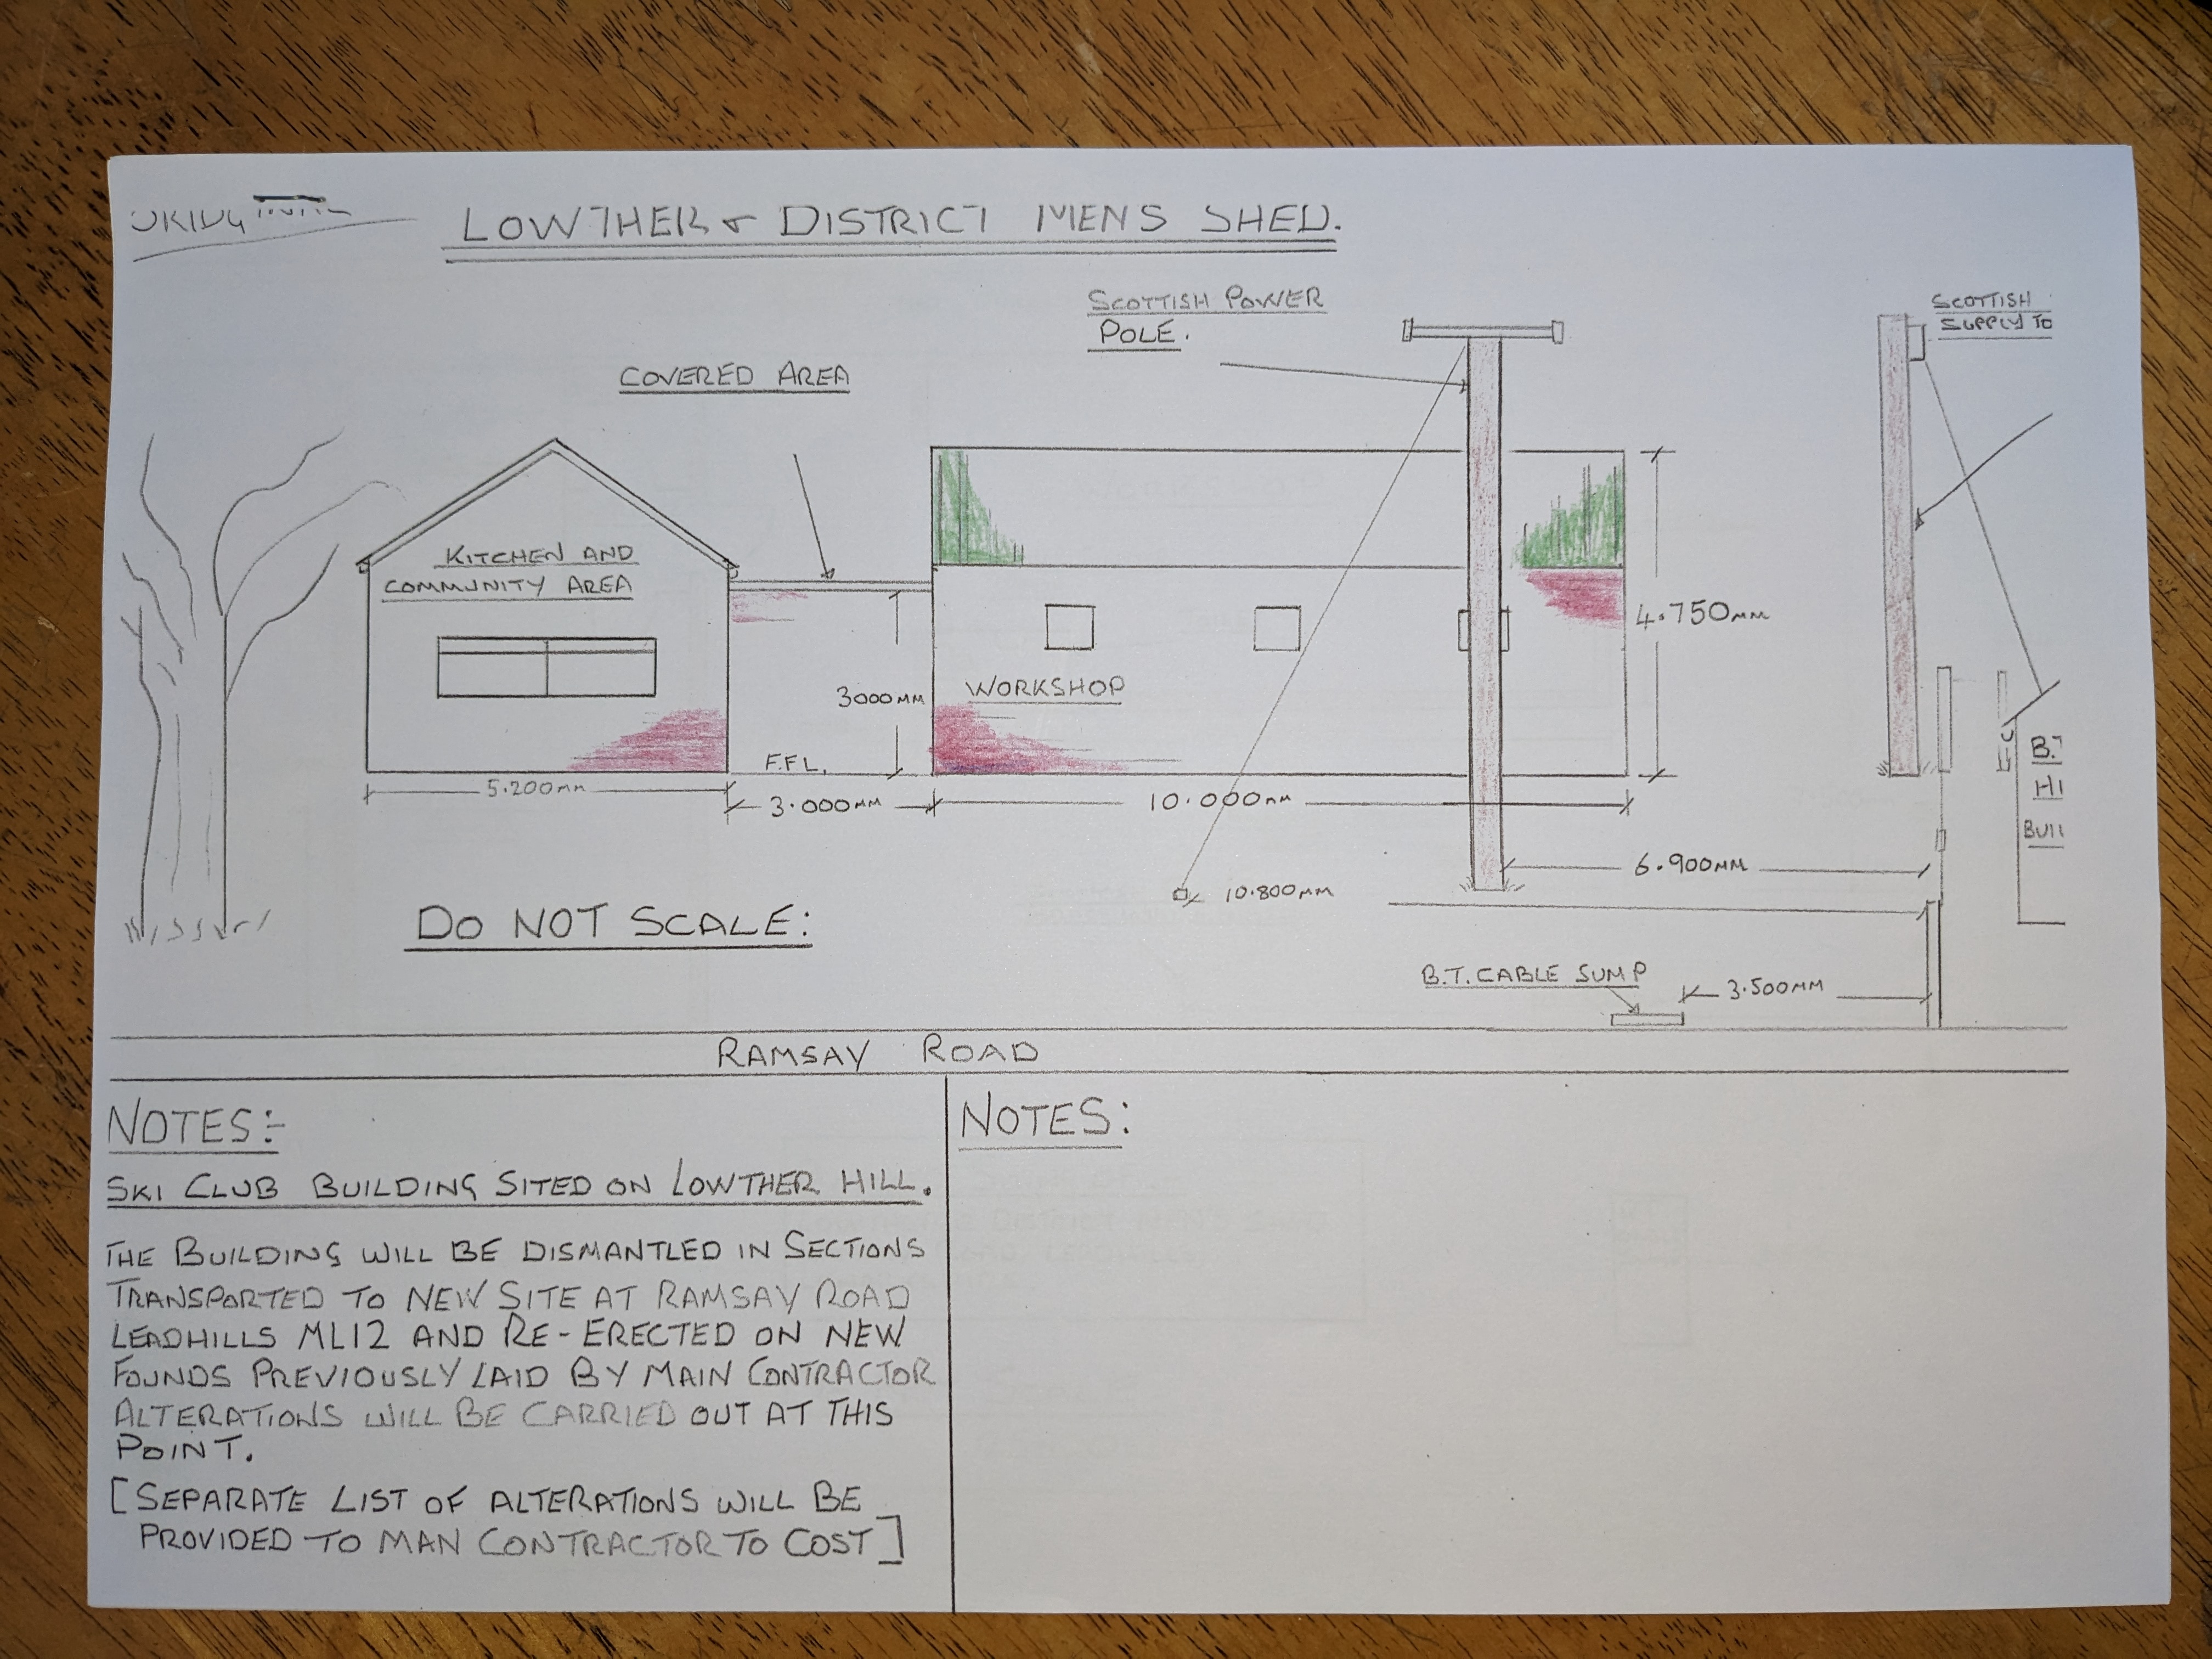 LOWTHER & DISTRICT MENS SHED.
SCOTTISH POWER
POLE.
SCOTTISH
SUPPLY TO
COVERED AREA
KITCHEN AND
COMMUNITY AREA
4.750MM
3000MM
WORKSHOP
F.F.L.
5.200MM
3.000MM
10.000MM
B.T
HI
BUI
6.900MM
10.800MM
DO NOT SCALE:
B.T. CABLE SUMP
3.500MM
RAMSAY ROAD
NOTES:-
SKI CLUB BUILDING SITED ON LOWTHER HILL.
THE BUILDING WILL BE DISMANTLED IN SECTIONS
TRANSPORTED TO NEW SITE AT RAMSAY ROAD
LEADHILLS ML12 AND RE-ERECTED ON NEW
FOUNDS PREVIOUSLY LAID BY MAIN CONTRACTOR
ALTERATIONS WILL BE CARRIED OUT AT THIS
POINT.
[SEPARATE LIST OF ALTERATIONS WILL BE
PROVIDED TO MAN CONTRACTOR TO COST]
NOTES: